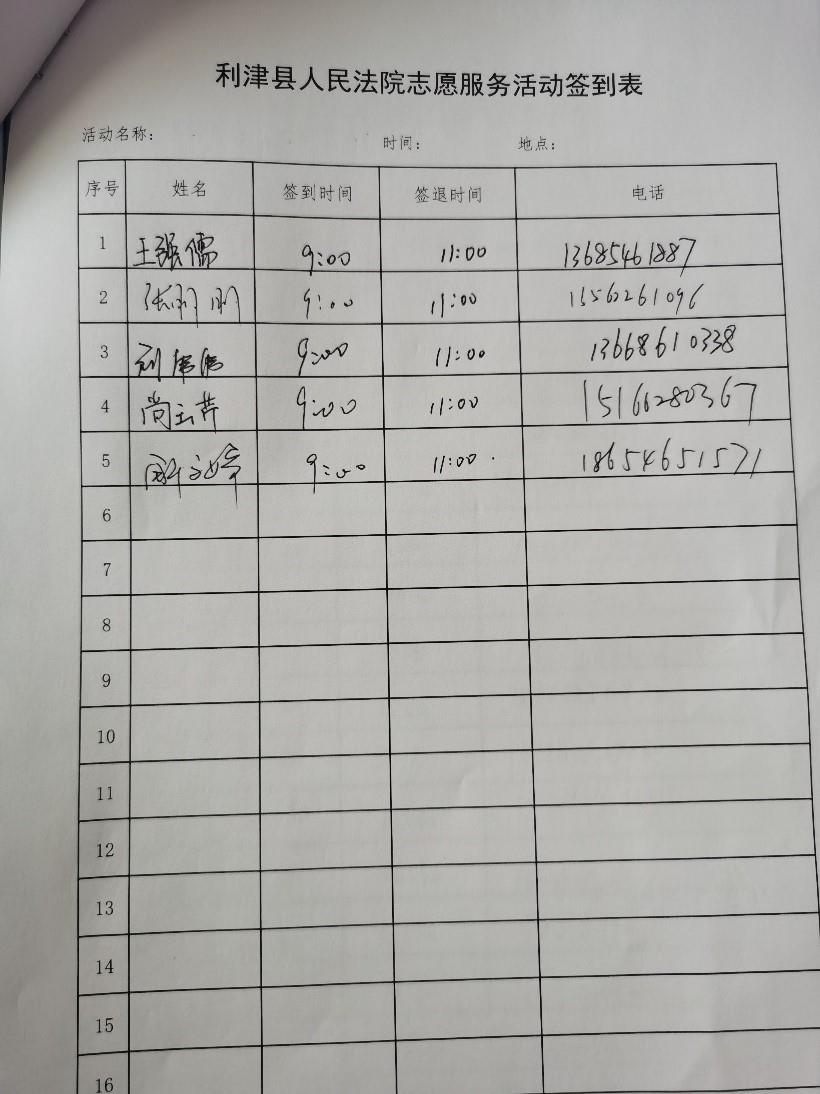 利津县人民法院志愿服务活动签到表
活动名称: 时间: 地点:
序号 姓名 签到时间 签退时间 电话
1 王强儒 9:00 11:00 13685461887
2 张明明 9:00 11:00 13562261096
3 9:00 11:00 13668610338
4 尚玉芹 9:00 11:00 15166280367
5 9:00 11:00 18654651571
6
7
8
9
10
11
12
13
14
15
16